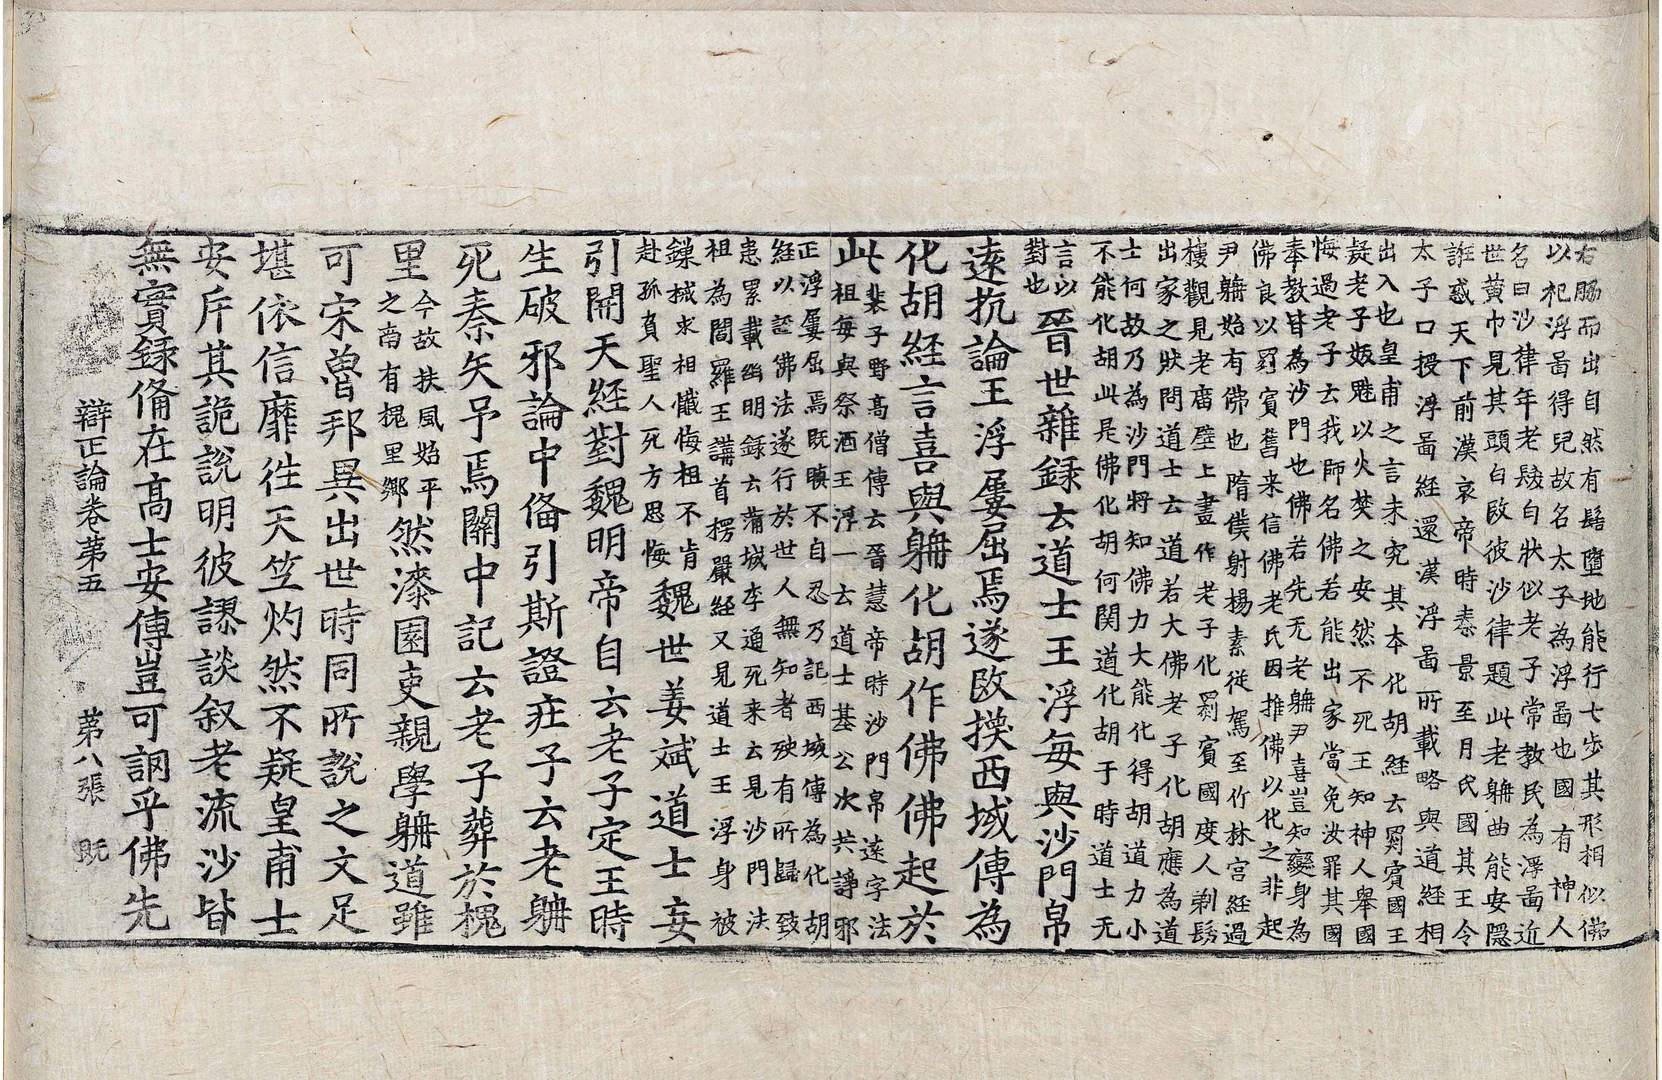 右腋而出自然有髻墮地能行七步其形相似佛
以祀浮啚得兒故名太子為浮啚也國有神人
名曰沙律年老髮白狀似老子常教民為浮啚近
世黃巾見其頭白改彼沙律題此老聃曲能安隱
誑惑天下前漢哀帝時秦景至月氏國其王令
太子口授浮啚經還漢浮啚所載略與道經相
出入也皇甫之言未究其本化胡經云罽賓國王
疑老子妭魅以火焚之安然不死王知神人舉國
悔過老子云我師名佛若能出家當免汝罪其國
奉教皆為沙門也佛若先无老聃尹喜豈知變身為
佛良以罽賓舊来信佛老氏因推佛以化之非起
尹聃始有佛也隋僕射楊素從駕至竹林宮經過
樓觀見老廟壁上畫作老子化罽賓國度人剃髮
出家之狀問道士云道若大佛老子化胡應為道
士何故乃為沙門將知佛力大能化得胡道力小
不能化胡此是佛化胡何関道化胡于時道士无
言以對也晉世雜錄云道士王浮每與沙門帛
遠抗論王浮屢屈焉遂改換西域傳為
化胡經言喜與聃化胡作佛佛起於
此裴子野高僧傳云晉慧帝時沙門帛遠字法
祖每與祭酒王浮一云道士基公次共諍邪
正浮屢屈焉既瞋不自忍乃記西域傳為化胡
經以誣佛法遂行於世人無知者殃有所歸致
患累載幽明錄云蒲城李通死来云見沙門法
祖為閻羅王講首楞嚴經又見道士王浮身被
鏁械求相懺悔祖不肯
赴孤負聖人死方思悔魏世姜斌道士妄
引開天經對魏明帝自云老子定王時
生破邪論中俻引斯證莊子云老聃
死秦矢弔焉關中記云老子葬於槐
里今故扶風始平之南有槐里鄉然漆園吏親學聃道雖
可宋魯邦異出世時同所說之文足
堪依信靡徃天竺灼然不疑皇甫士
安斥其詭說明彼謬談叙老流沙皆
無實錄俻在高士安傳豈可誷乎佛先
辯正論卷第五　第八張　既